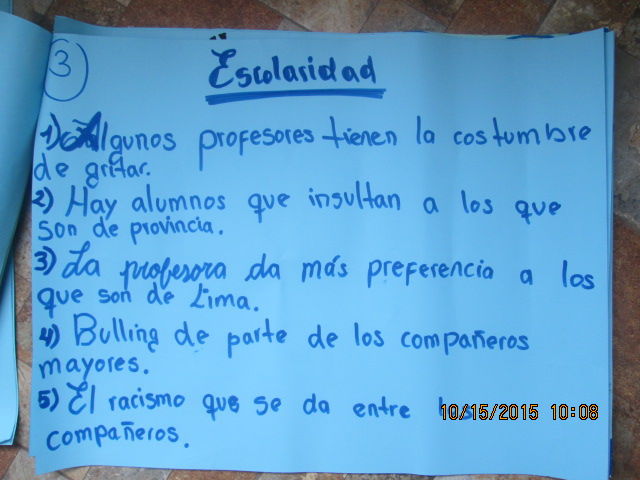 3
Escolaridad
1) Algunos profesores tienen la costumbre
de gritar.
2) Hay alumnos que insultan a los que
son de provincia.
3) La profesora da más preferencia a los
que son de Lima.
4) Bulling de parte de los compañeros
mayores.
5) El racismo que se da entre los
compañeros.
10/15/2015 10:08